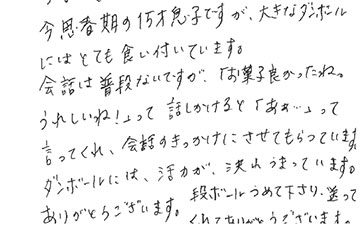 今思春期の15才息子ですが、大きなダンボール
にはとても食い付いています。
会話は普段ないですが、「お菓子良かったね。
うれしいね!」って話しかけると「あぁ…」って
言ってくれ、会話のきっかけにさせてもらってます
ダンボールには、活力が、沢山うまっています。
ありがとうございます。段ボールうめて下さり、送って
くれてありがとうございます。